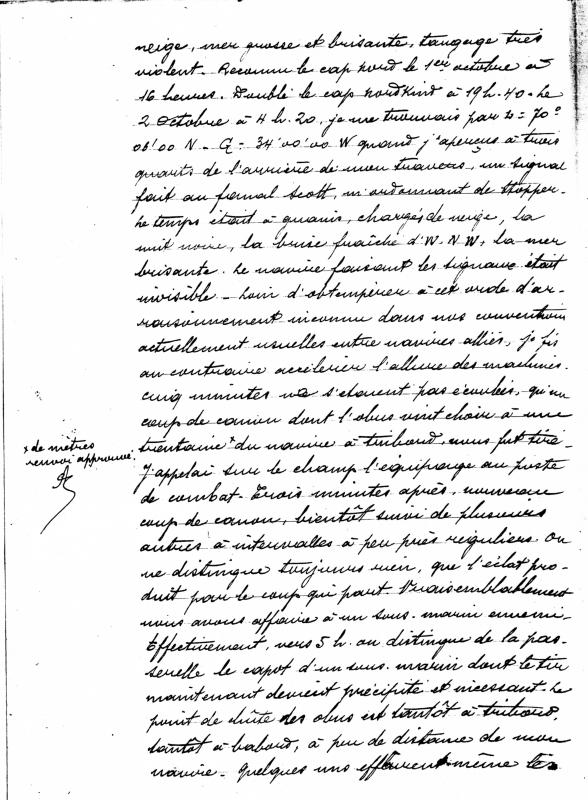 neige, mer grosse et brisante, tangage très
violent. Reconnu le cap nord le 1er octobre à
16 heures. Doublé le cap nordkind à 19 h. 40. Le
2 Octobre à 4 h. 20, je me trouvais par L = 70°
06'00 N - G = 34°00'00 W quand j'aperçus à trois
quarts de l'arrière de mon travers, un signal
fait au fanal Scott, m'ordonnant de stopper.
Le temps était à grains, chargés de neige, la
nuit noire, la brise fraîche d'W.N.W, la mer
brisante. Le navire faisant les signaux était
invisible - Loin d'obtempérer à cet ordre d'ar-
raisonnement inconnu dans nos conventions
actuellement usuelles entre navires alliés, je fis
au contraire accélérer l'allure des machines.
cinq minutes ne s'étaient pas écoulées, qu'un
coup de canon dont l'obus vint choir à une
trentaine x du navire à tribord, nous fut tiré.
x de mètres
renvoi approuvé.
J'appelai sur le champ l'équipage au poste
de combat. Trois minutes après, nouveau
coup de canon, bientôt suivi de plusieurs
autres à intervalles à peu près réguliers. On
ne distingue toujours rien, que l'éclat pro-
duit par le coup qui part. Vraisemblablement
nous avons affaire à un sous-marin ennemi.
Effectivement, vers 5 h. on distingue de la pas-
serelle le capot d'un sous-marin dont le tir
maintenant devient précipité et incessant. Le
point de chûte des obus est tantôt à tribord,
tantôt à babord, à peu de distance de mon
navire. Quelques uns même les